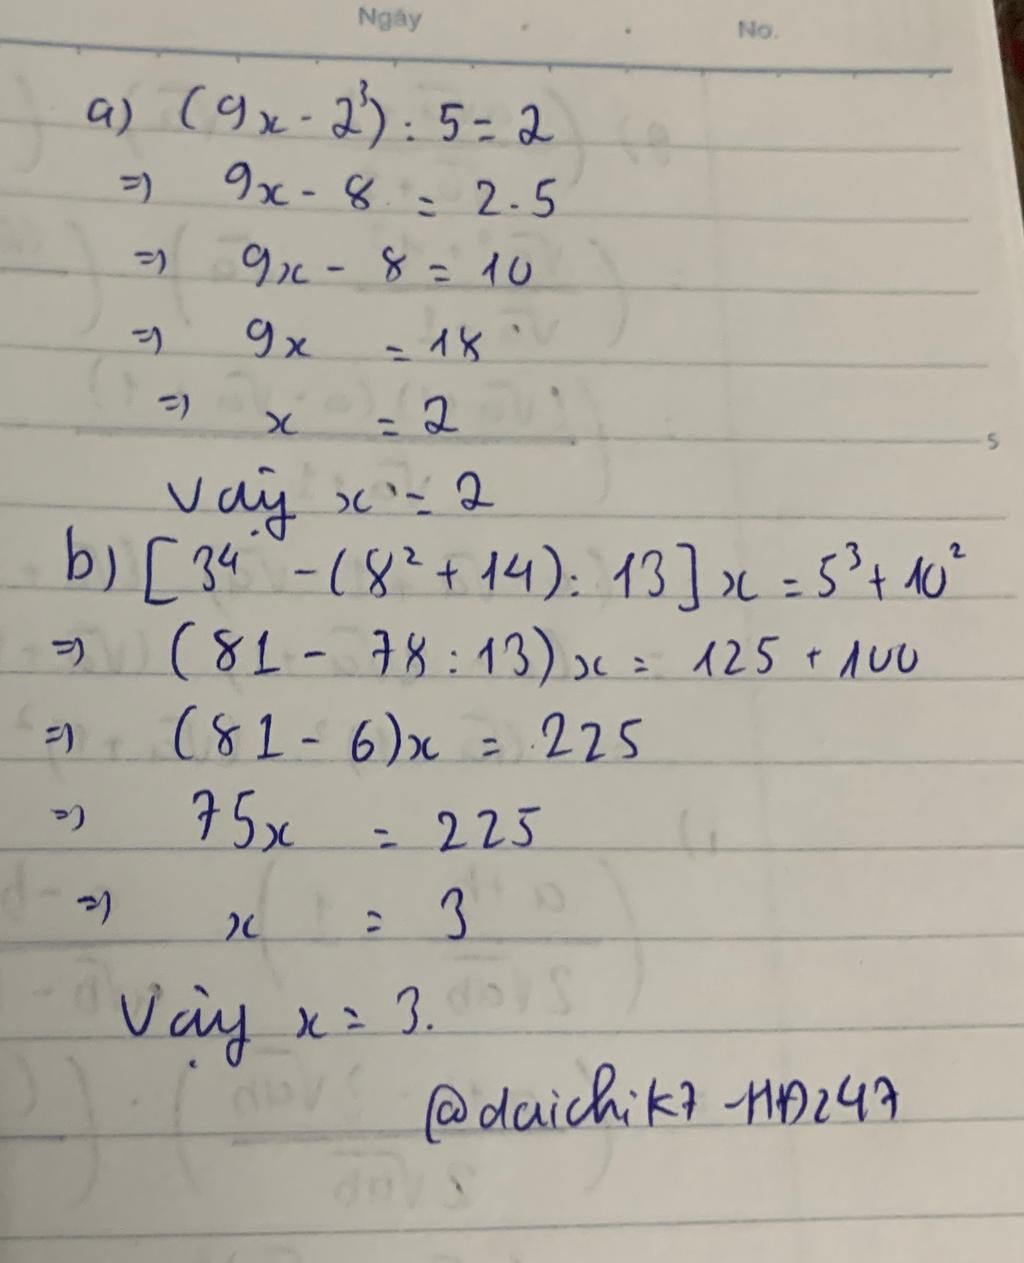 Ngày No.
a) (9x - 2³) : 5 = 2
=> 9x - 8 = 2.5
=> 9x - 8 = 10
=> 9x = 18
=> x = 2
5
Vậy x = 2
b) [3⁴ - (8² + 14) : 13] x = 5³ + 10²
=> (81 - 78 : 13) x = 125 + 100
=> (81 - 6) x = 225
=> 75x = 225
=> x = 3
Vậy x = 3.
@daichik7 -HĐ247